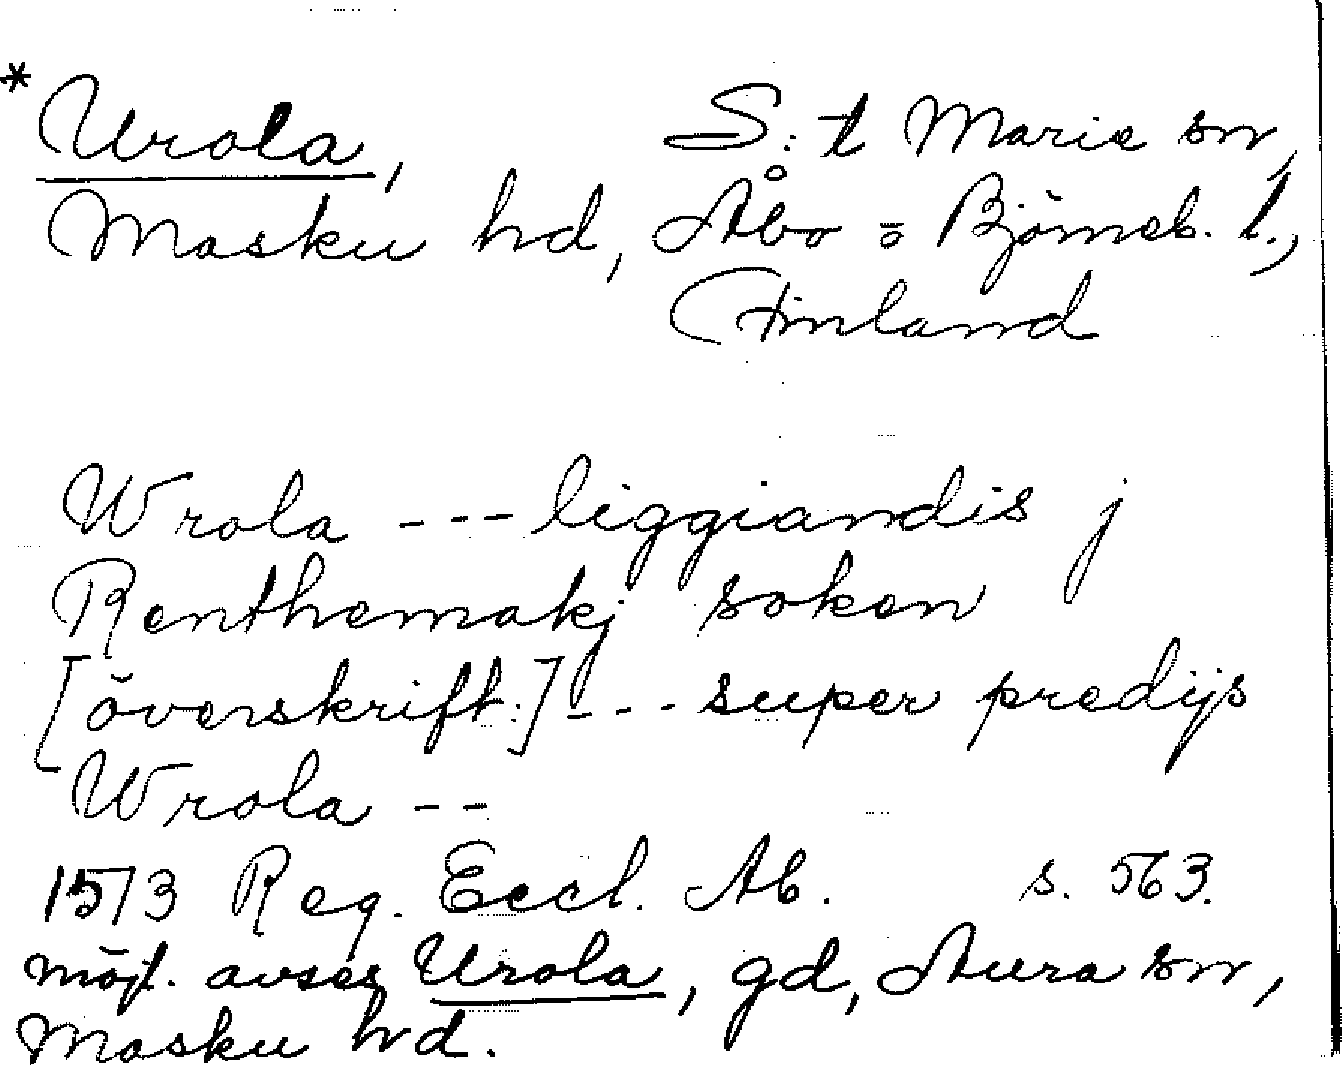 * Urola, S:t Marie sn,
Masku hd, Åbo = Björneb. l.,
Finland
Wrola --- liggiandis j
Renthemakj soken
[överskrift:] --- super predijs
Wrola --
1513 Reg. Eccl. Ab. s. 563.
möjl. avses Urola, gd, Aura sn,
Masku hd.